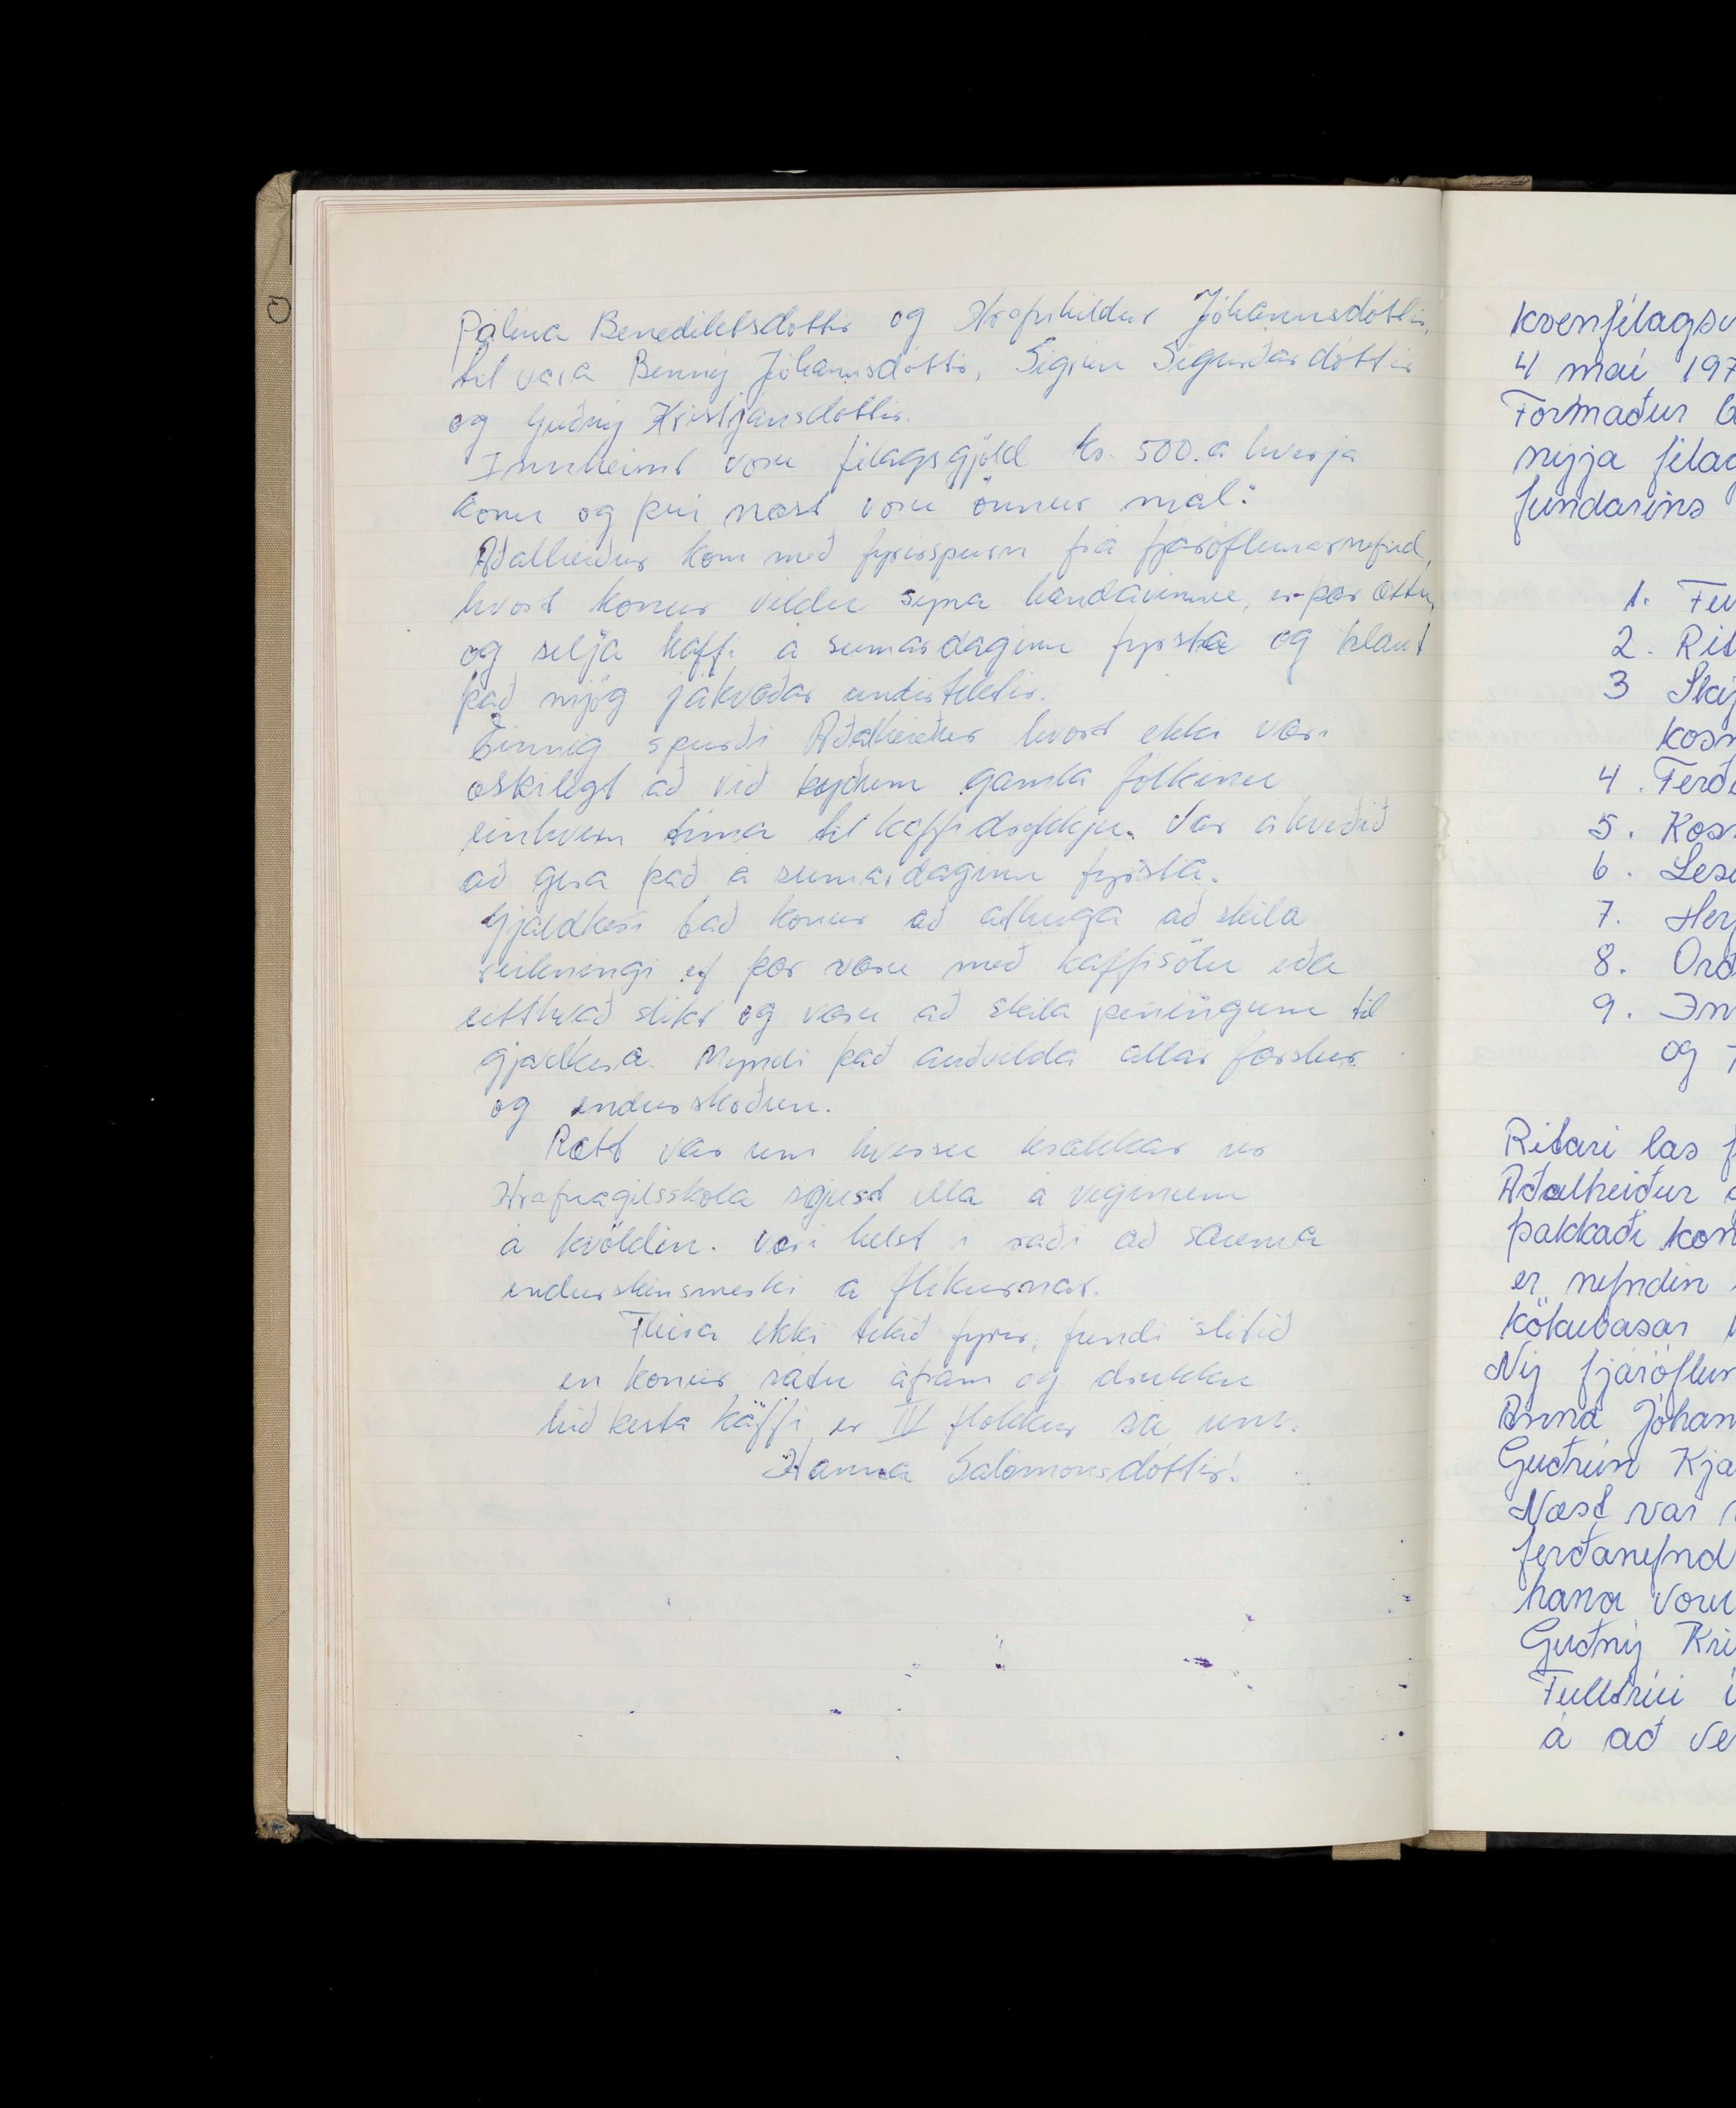 Pálína Benediktsdóttir og Hrafnhildur Jóhannsdóttir,
til vara Benný Jóhannsdóttir, Sigrún Sigurðardóttir
og Guðný Kristjánsdóttir.
Innheimt voru félagsgjöld kr. 500. á hverja
konu og því næst voru önnur mál:
Aðalheiður kom með fyrirspurn frá fjáröflunarnefnd,
hvort konur vildu sýna handavinnu, er þær ættu,
og selja kaffi á sumardaginn fyrsta og hlaut
það mjög jákvæðar undirtektir.
Einnig spurði Aðalheiður hvort ekki væri
æskilegt að við byðum gamla fólkinu
einhvern tíma til kaffidrykkju. Var ákveðið
að gera það á sumardaginn fyrsta.
Gjaldkeri bað konur að athuga að skila
reikningi ef þær væru með kaffisölu eða
eitthvað slíkt og væru að skila peningum til
gjaldkera. Myndi það auðvelda allar færslur
og endurskoðun.
Rætt var um hversu krakkar úr
Hrafnagilsskóla sæjust illa á veginum
á kvöldin. Væri helst í ráði að sauma
endurskinsmerki á flíkurnar.
Fleira ekki tekið fyrir, fundi slitið
en konur sátu áfram og drukku
hið besta kaffi er IV flokkur sá um.
Hanna Salómonsdóttir!
kvenfélagsi
4 maí 197
Formaður
nýja félag
fundarins
1. Fu
2. Rit
3 Ský
kosn
4. Ferð
5. Kosn
6. Les
7. Her
8. Orð
9. Inn
og
Ritari las f
Aðalheiður
þakkaði kon
er nefndin
kökubasar
Ný fjáröflun
Anna Jóhan
Guðrún Kja
Næst var
ferðanefnd
hana voru
Guðný Kri
Fulltrúi í
á að ve